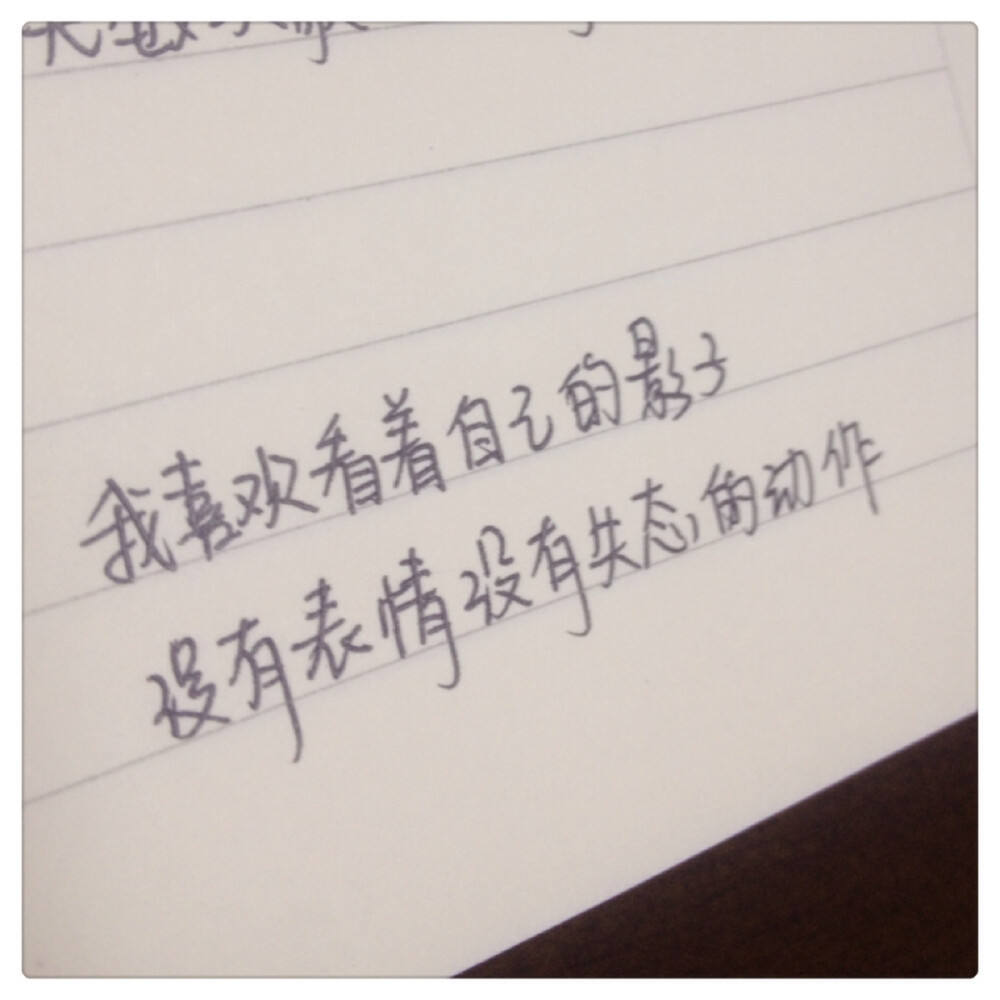 我喜欢看着自己的影子
没有表情没有失态的动作